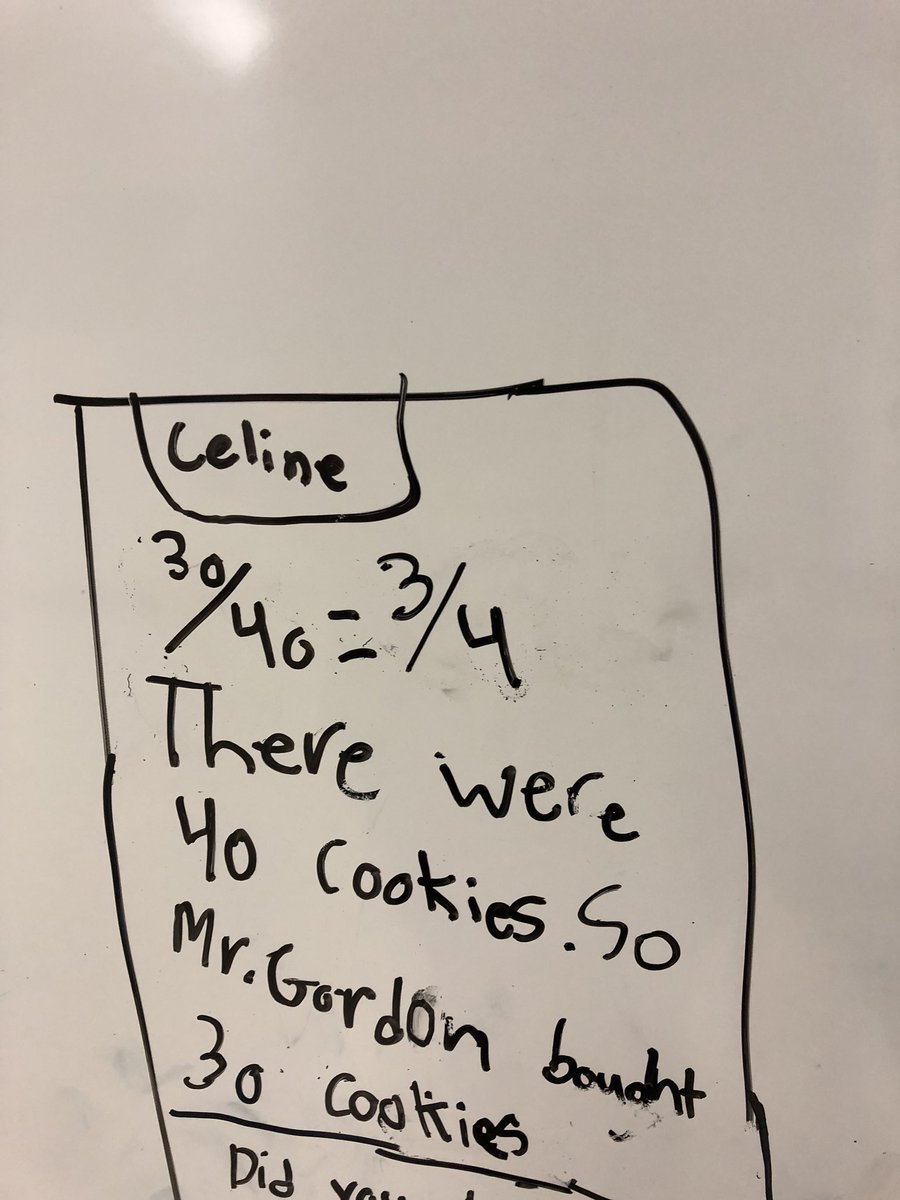 Celine
30/40 = 3/4
There were
40 cookies. So
Mr. Gordon bought
30 cookies
Did you